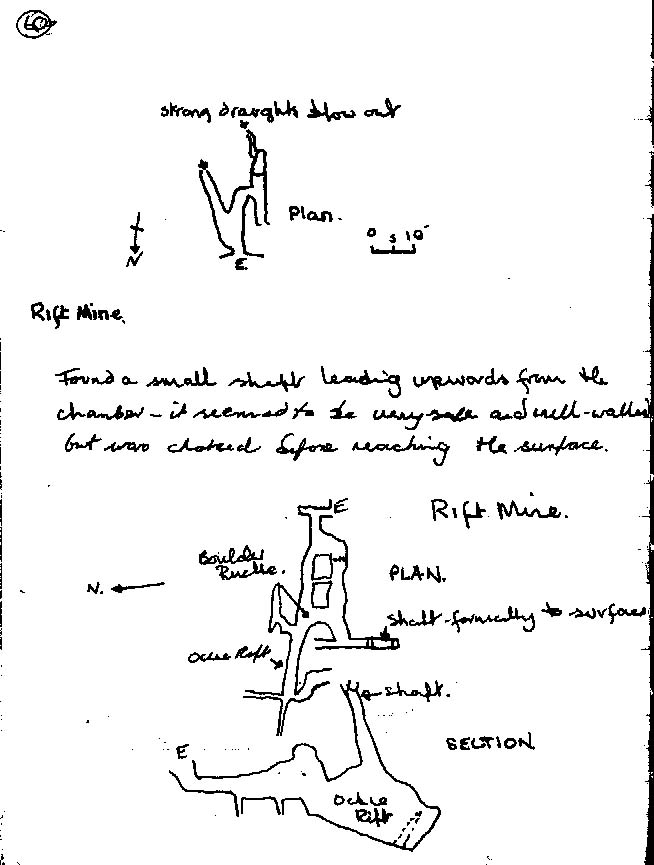 strong draughts blow out
Plan.
0 5 10'
N
E.
Rift Mine.
Found a small shaft leading upwards from the
chamber - it seemed to be very safe and well-walled
but was choked before reaching the surface.
E
Rift Mine.
Boulder
Ruckle.
N.
PLAN.
Shaft - formerly to surface
Ochre Rift
Up shaft.
SECTION
E
Ochre
Rift